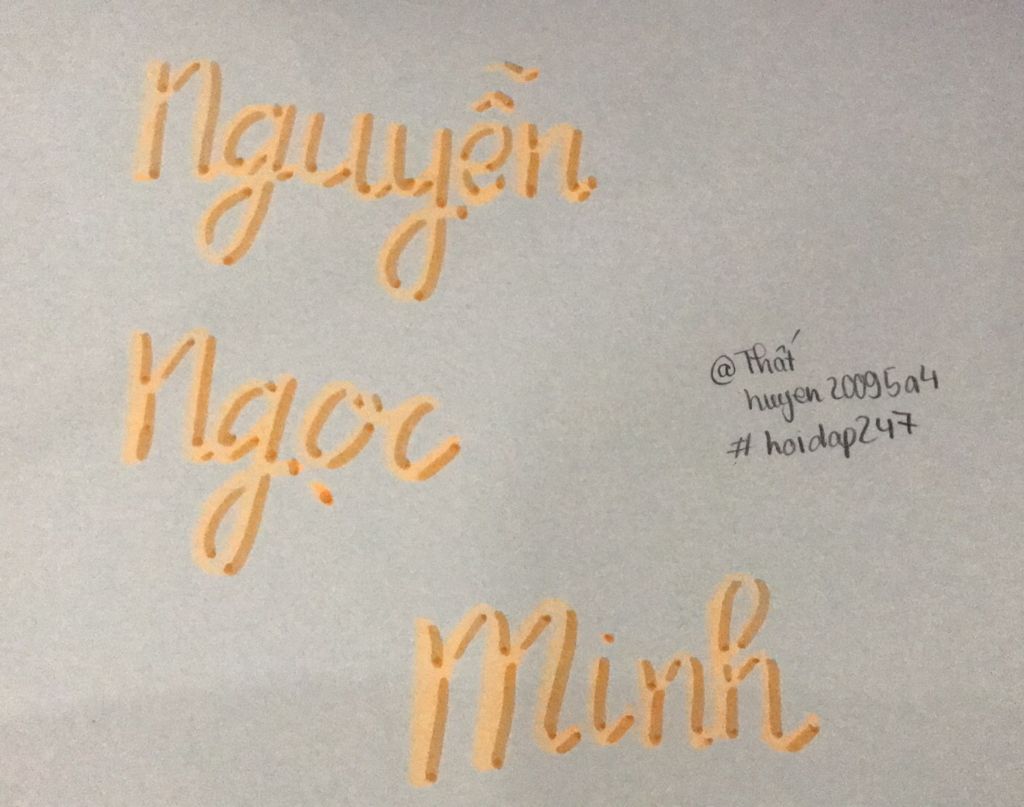 Nguyễn
Ngọc
@Thất
huyen20095a4
#hoidap247
Minh